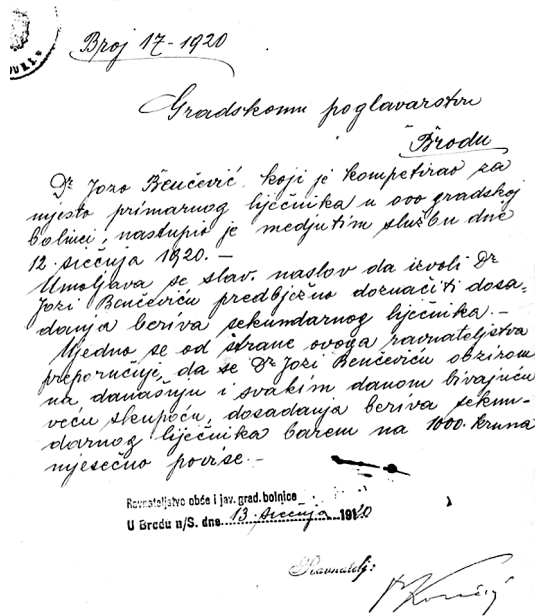 Broj 17-1920
Gradskomu poglavarstvu
Brodu
Dr Jozo Benčević koji je kompetirao za
mjesto primarnog liječnika u ovogradskoj
bolnici, nastupio je medjutim službu dne
12. siečnja 1920. –
Umoljava se slav. naslov da izvoli Dr
Jozi Benčeviću predbježno doznačiti dosa-
danja beriva sekundarnog liječnika. –
Ujedno se od strane ovoga ravnateljstva
preporučuje, da se Dr Jozi Benčeviću obzirom
na današnju i svakim danom bivajuću
veću skupoću, dosadanja beriva sekun-
darnog liječnika barem na 1000. kruna
mjesečno povise. –
Ravnateljstvo obće i jav. grad. bolnice
U Brodu n/S. dne 13. siečnja 1920
Ravnatelj: